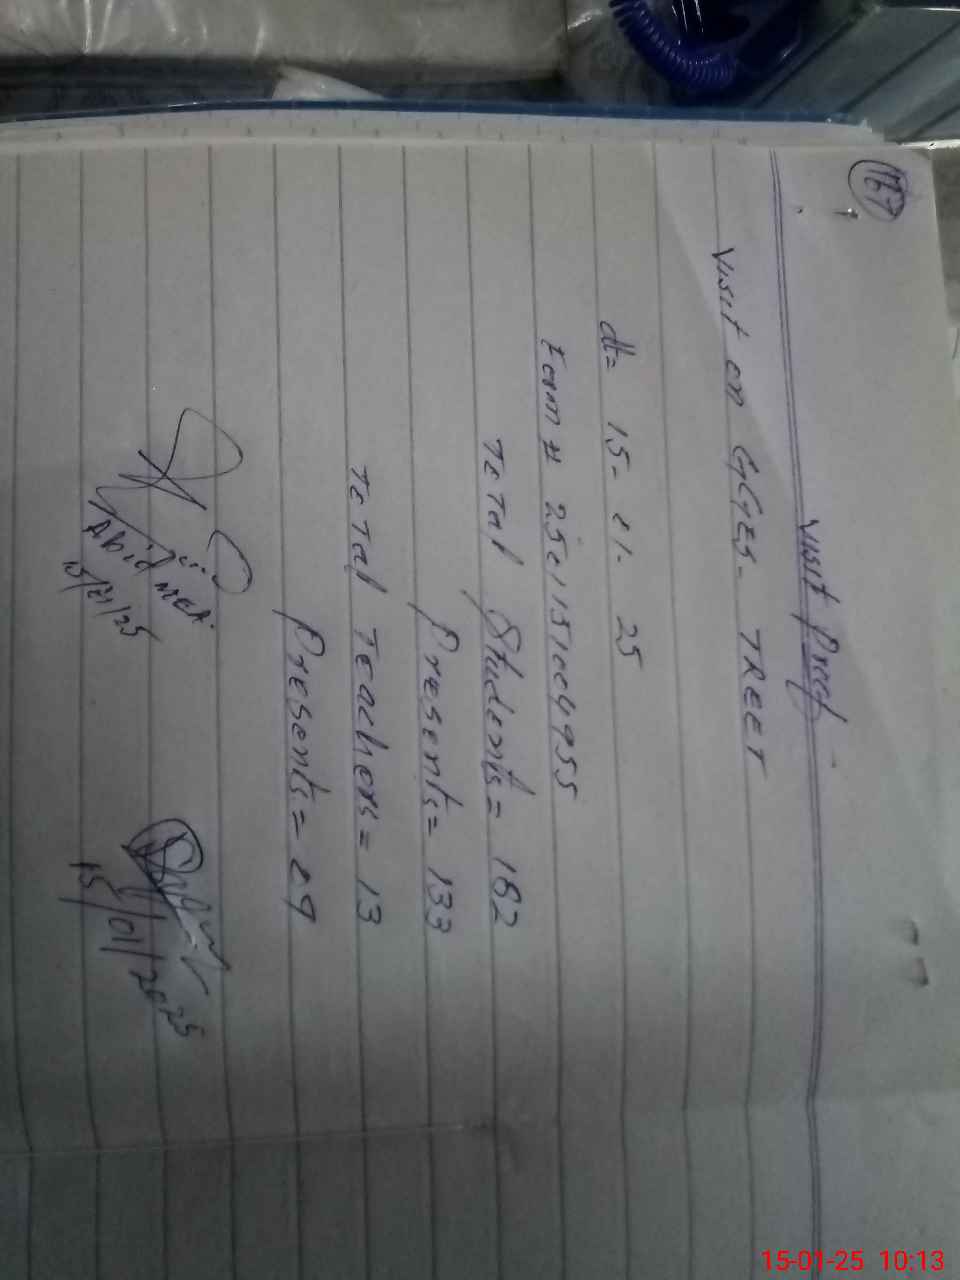 167
Visit Proof
Visit on GGES- TREET
dt= 15-01-25
Form # 2501151004955
Total Students= 182
Presents= 133
Total Teachers= 13
Presents= 09
Abid MEA.
15/01/25
15/01/2025
15-01-25 10:13